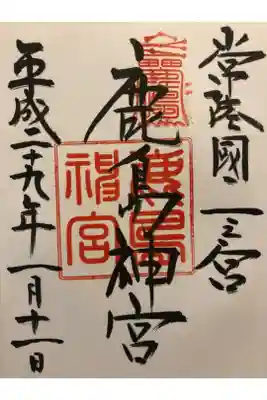 常陸國一之宮
鹿島神宮
鹿島
神宮
平成二十九年一月十一日